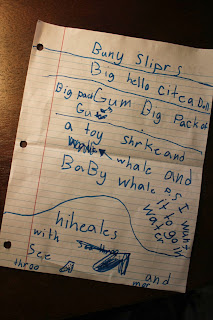 Buny Sliprs
Big hello Citea Doll
Big pack Gum Big Pack of
Gu
a toy shrke and
whale and
BaBy whale
PS I
want
it to go in
water
hiheales
with
See
throo
and
mor